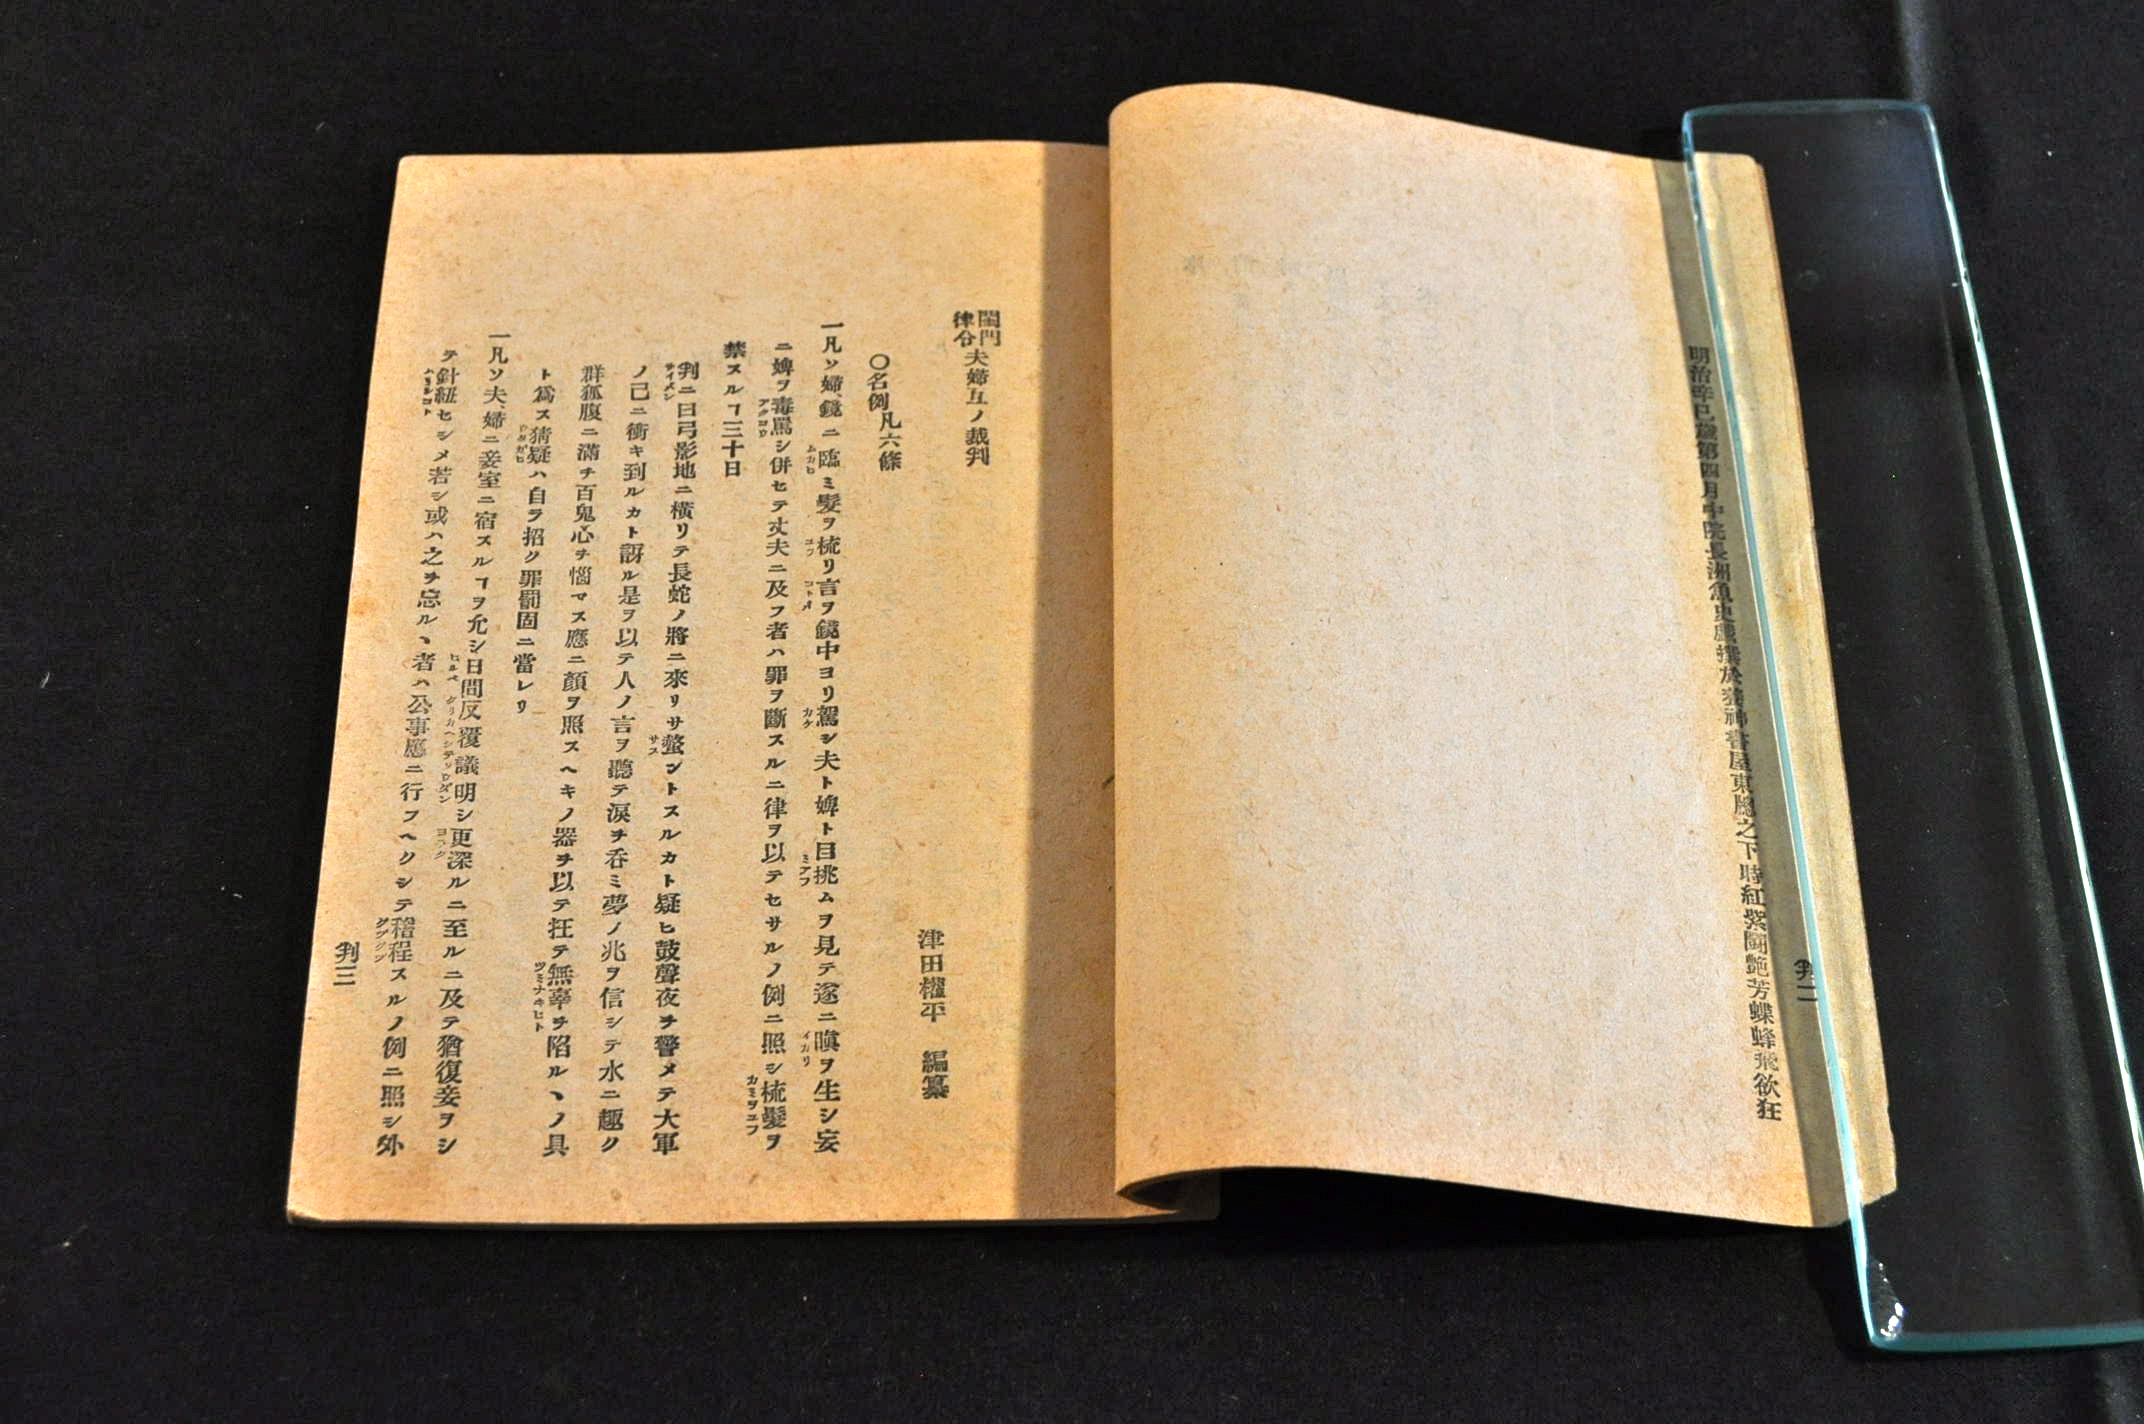 明治辛巳歲第四月中院長洲魚史戲撰於 書屋東窻之下時紅紫鬪艶芳蝶蜂飛欲狂
判二
閨門律令 夫婦互ノ裁判
津田權平 編纂
〇名例凡六條
一凡ソ婦、鏡ニ臨ミ髮ヲ梳リ言ヲ鏡中ヨリ駕シ夫ト婢ト目挑ムヲ見テ遂ニ瞋ヲ生シ妄
ニ婢ヲ毒罵シ併セテ丈夫ニ及フ者ハ罪ヲ斷スルニ律ヲ以テセサルノ例ニ照シ梳髮ヲ
禁スルヿ三十日
判ニ曰弓影地ニ橫リテ長蛇ノ將ニ來リサ螫ントスルカト疑ヒ鼓聲夜ヲ警メテ大軍
ノ己ニ衝キ到ルカト訝ル是ヲ以テ人ノ言ヲ聽テ淚ヲ呑ミ夢ノ兆ヲ信シテ水ニ趣ク
群狐腹ニ滿チ百鬼心ヲ惱マス應ニ顏ヲ照スヘキノ器ヲ以テ抂テ無辜ヲ陷ルヽノ具
ト爲ス猜疑ハ自ラ招ク罪罰固ニ當レリ
一凡ソ夫、婦ニ妾室ニ宿スルヿヲ允シ日間反覆議明シ更深ルニ至ルニ及テ猶復妾ヲシ
テ針紐セシメ若シ或ハ之ヲ忘ルヽ者ハ公事應ニ行フヘクシテ稽程スルノ例ニ照シ外
判三